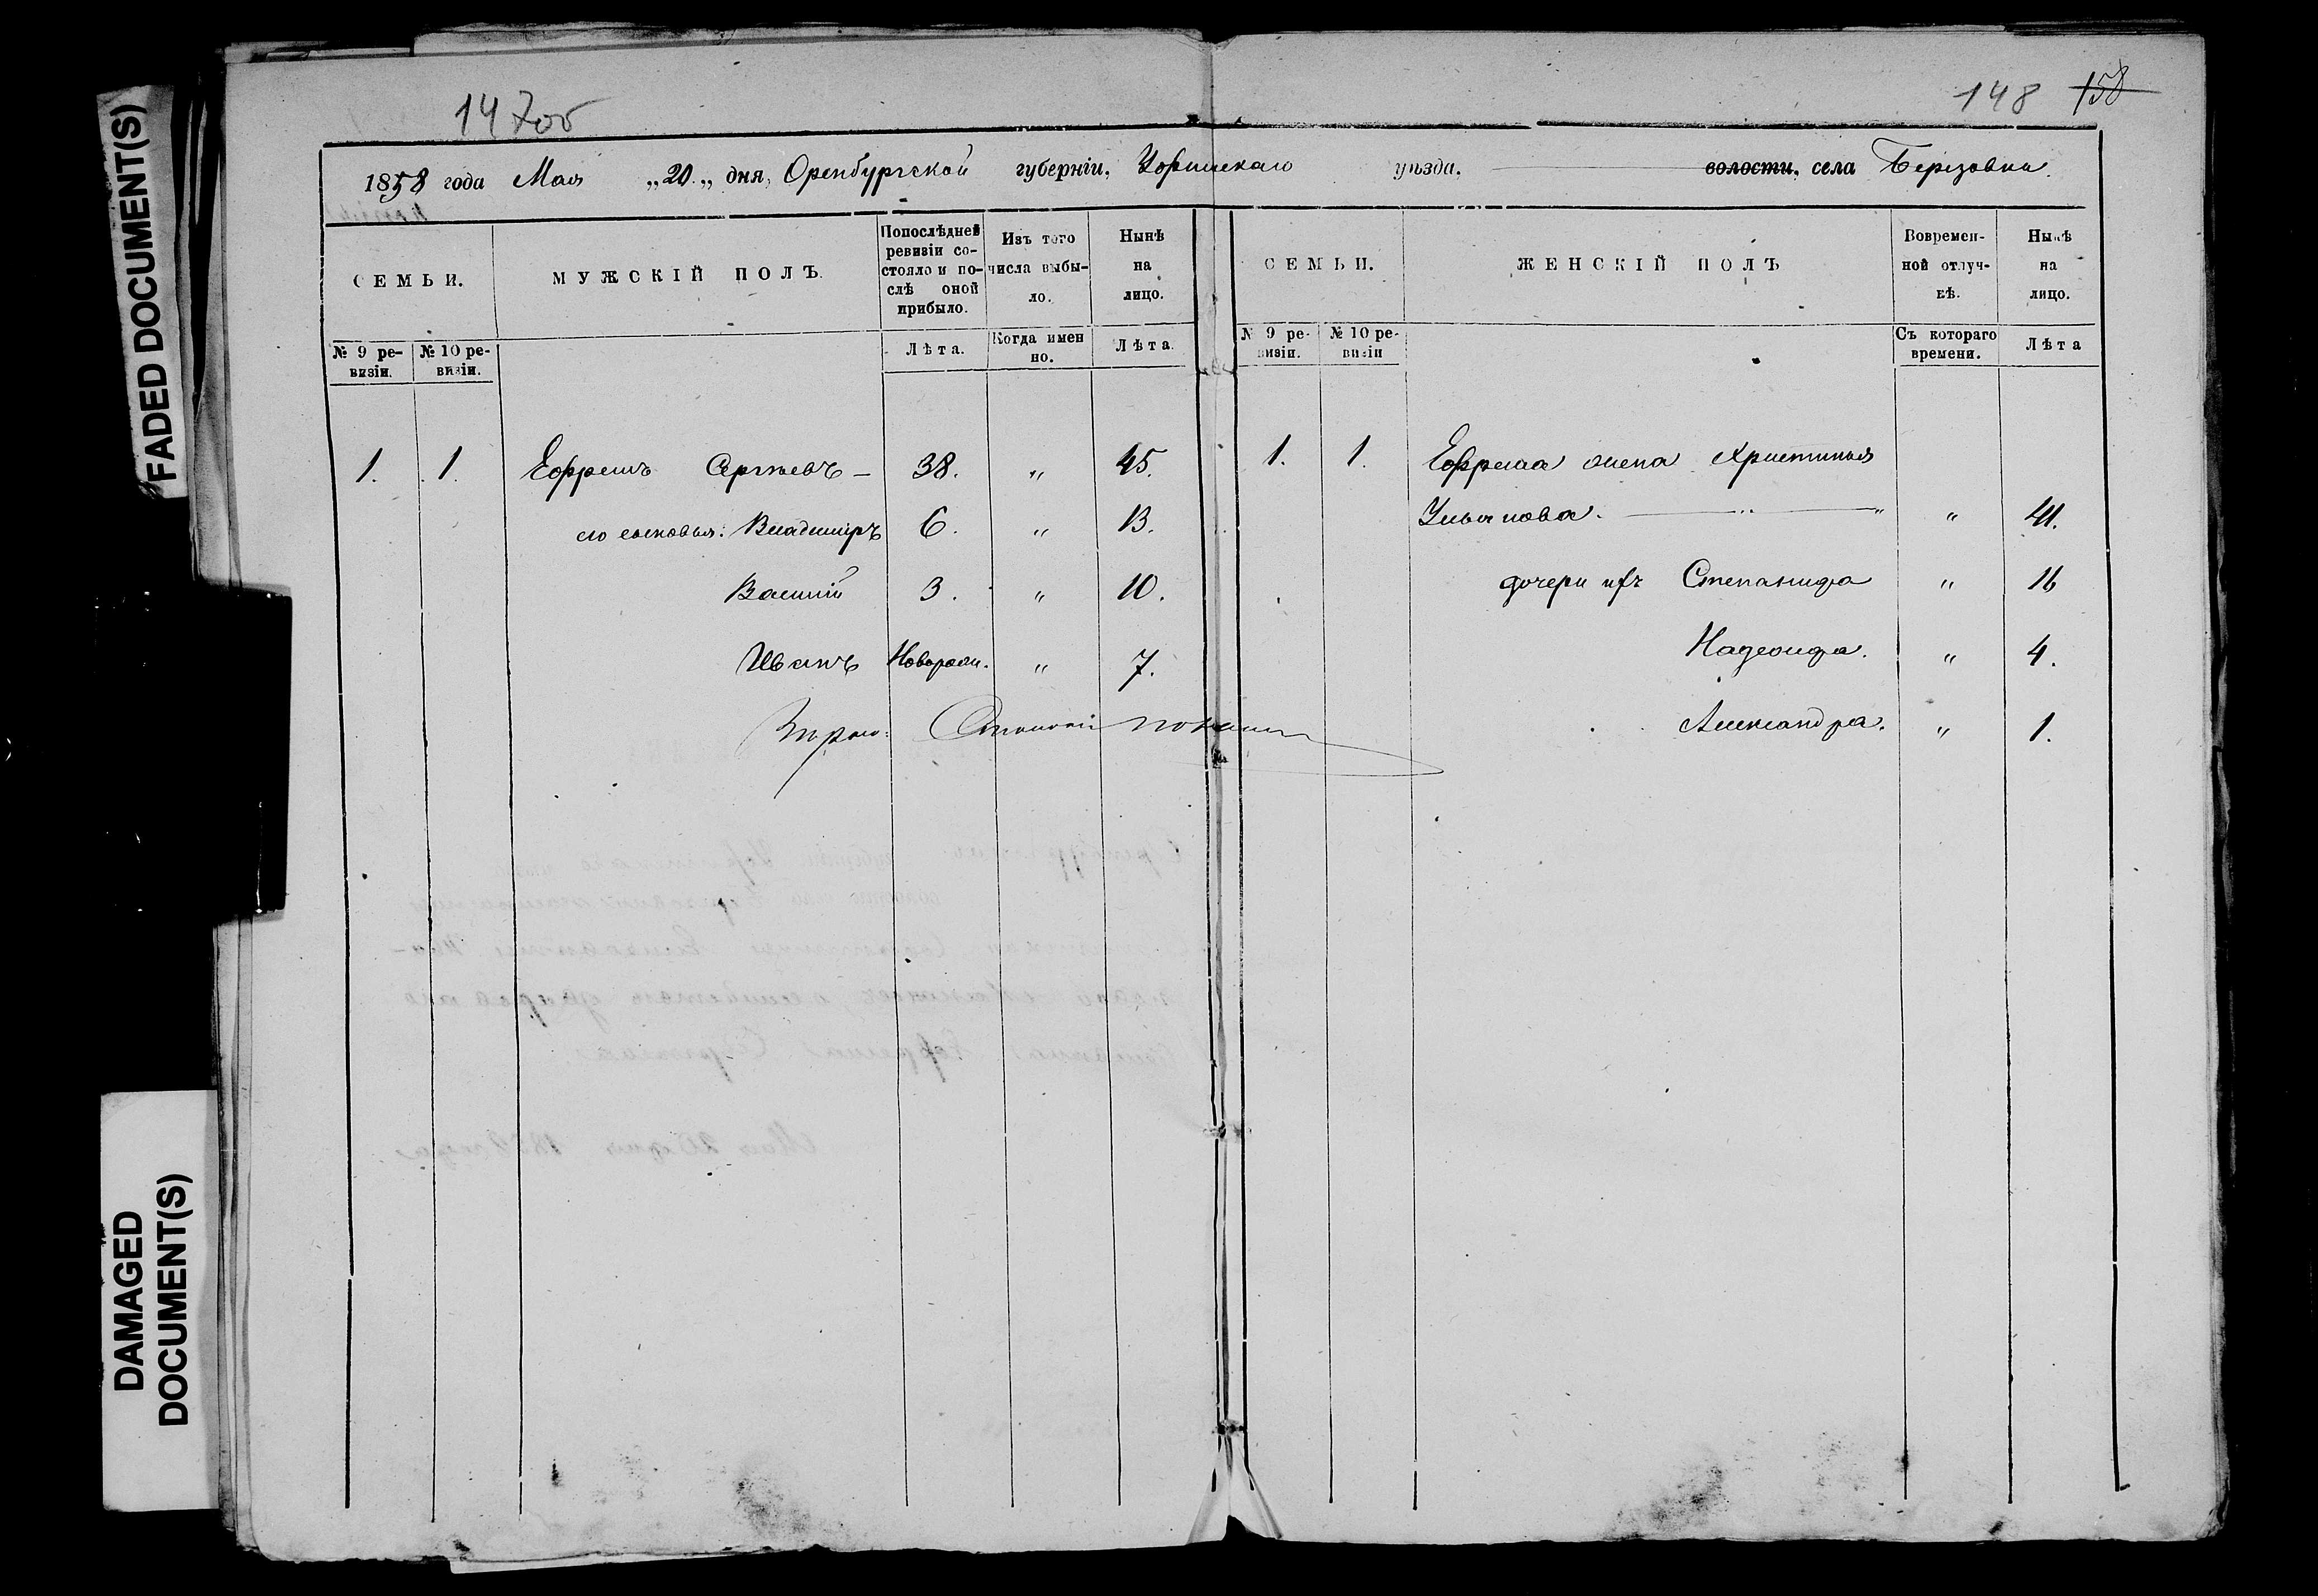 FADED DOCUMENT(S)
DAMAGED DOCUMENT(S)
147об
148 158
1858 года Мая „20„ дня, Оренбургской губерніи, Уфимскаго уѣзда, волости, села Березовки.
СЕМЬИ.
МУЖСКІЙ ПОЛЪ.
Попослѣдней ревизіи состояло и послѣ оной прибыло.
Изъ того числа выбыло.
Нынѣ на лицо.
СЕМЬИ.
ЖЕНСКІЙ ПОЛЪ
Вовременной отлучкѣ.
Нынѣ на лицо.
№ 9 ревизіи.
№ 10 ревизіи.
Лѣта.
Когда именно.
Лѣта.
№ 9 ревизіи.
№ 10 ревизіи
Съ котораго времени.
Лѣта
1. 1. Ефремъ Сергѣевъ – 38. „ 45.
его сыновья: Владимiръ 6. „ 13.
Василій 3. „ 10.
Иванъ Новорож. „ 7.
1. 1. Ефрема жена Христинья
Ульянова. „ „ 41.
дочери ихъ Степанида „ 16
Надежда. „ 4.
Александра. „ 1.